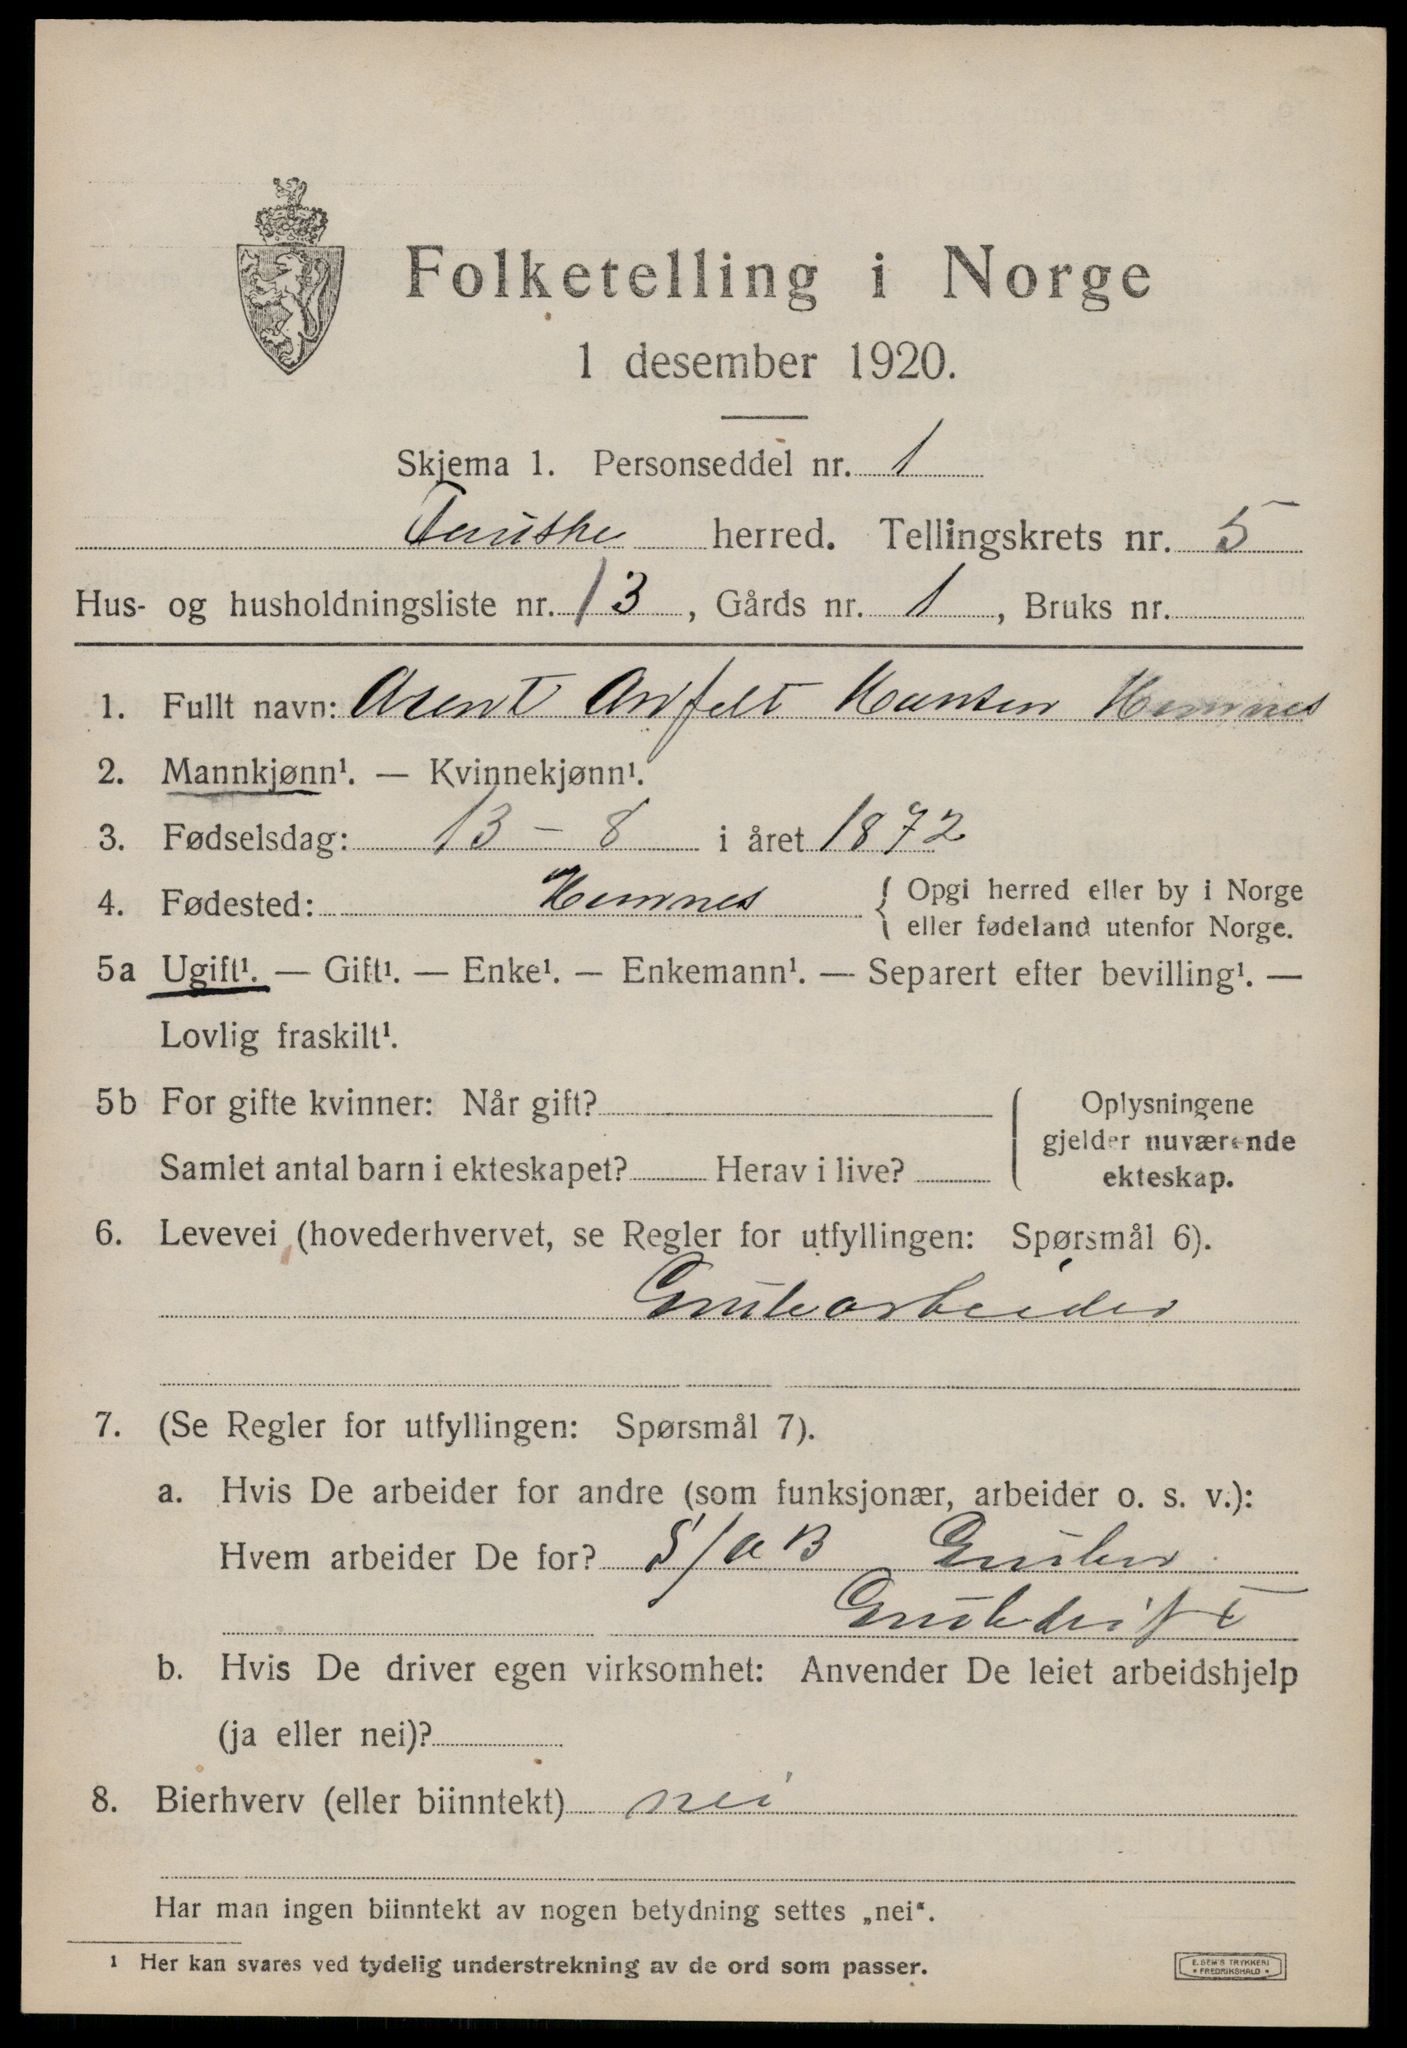 Folketelling i Norge
1 desember 1920.
Skjema 1. Personseddel nr. 1
Fauske herred. Tellingskrets nr. 5
Hus- og husholdningsliste nr. 13, Gårds nr. 1, Bruks nr.
1. Fullt navn: Arent Arnfelt Hansen Hemnes
2. Mannkjønn¹. — Kvinnekjønn¹.
3. Fødselsdag: 13 - 8 i året 1872
4. Fødested: Hemnes { Opgi herred eller by i Norge
eller fødeland utenfor Norge.
5a Ugift¹. — Gift¹. — Enke¹. — Enkemann¹. — Separert efter bevilling¹. —
Lovlig fraskilt¹.
5b For gifte kvinner: Når gift? Oplysningene
gjelder nuværende
Samlet antal barn i ekteskapet? Herav i live? ekteskap.
6. Levevei (hovederhvervet, se Regler for utfyllingen: Spørsmål 6).
Grubearbeider
7. (Se Regler for utfyllingen: Spørsmål 7).
a. Hvis De arbeider for andre (som funksjonær, arbeider o. s. v.):
Hvem arbeider De for? S/aB Gruber
Grubedrift
b. Hvis De driver egen virksomhet: Anvender De leiet arbeidshjelp
(ja eller nei)?
8. Bierhverv (eller biinntekt) nei
Har man ingen biinntekt av nogen betydning settes „nei“.
¹ Her kan svares ved tydelig understrekning av de ord som passer.
E. SEM'S TRYKKERI
* FREDRIKSHALD *